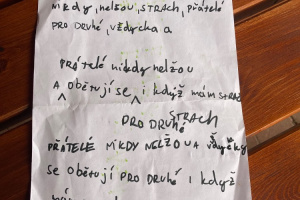 NIKDY, nelžou, STRACH, PŘÁTELÉ
PRO DRUHÉ, VŽDYCKY A
PŘÁTELÉ nikdy nelžou
A obětují se i když mám STRACH
PRO DRUHÉ STRACH
PŘÁTELÉ NIKDY NELŽOU A
SE OBĚTUJÍ PRO DRUHÉ I KDYŽ